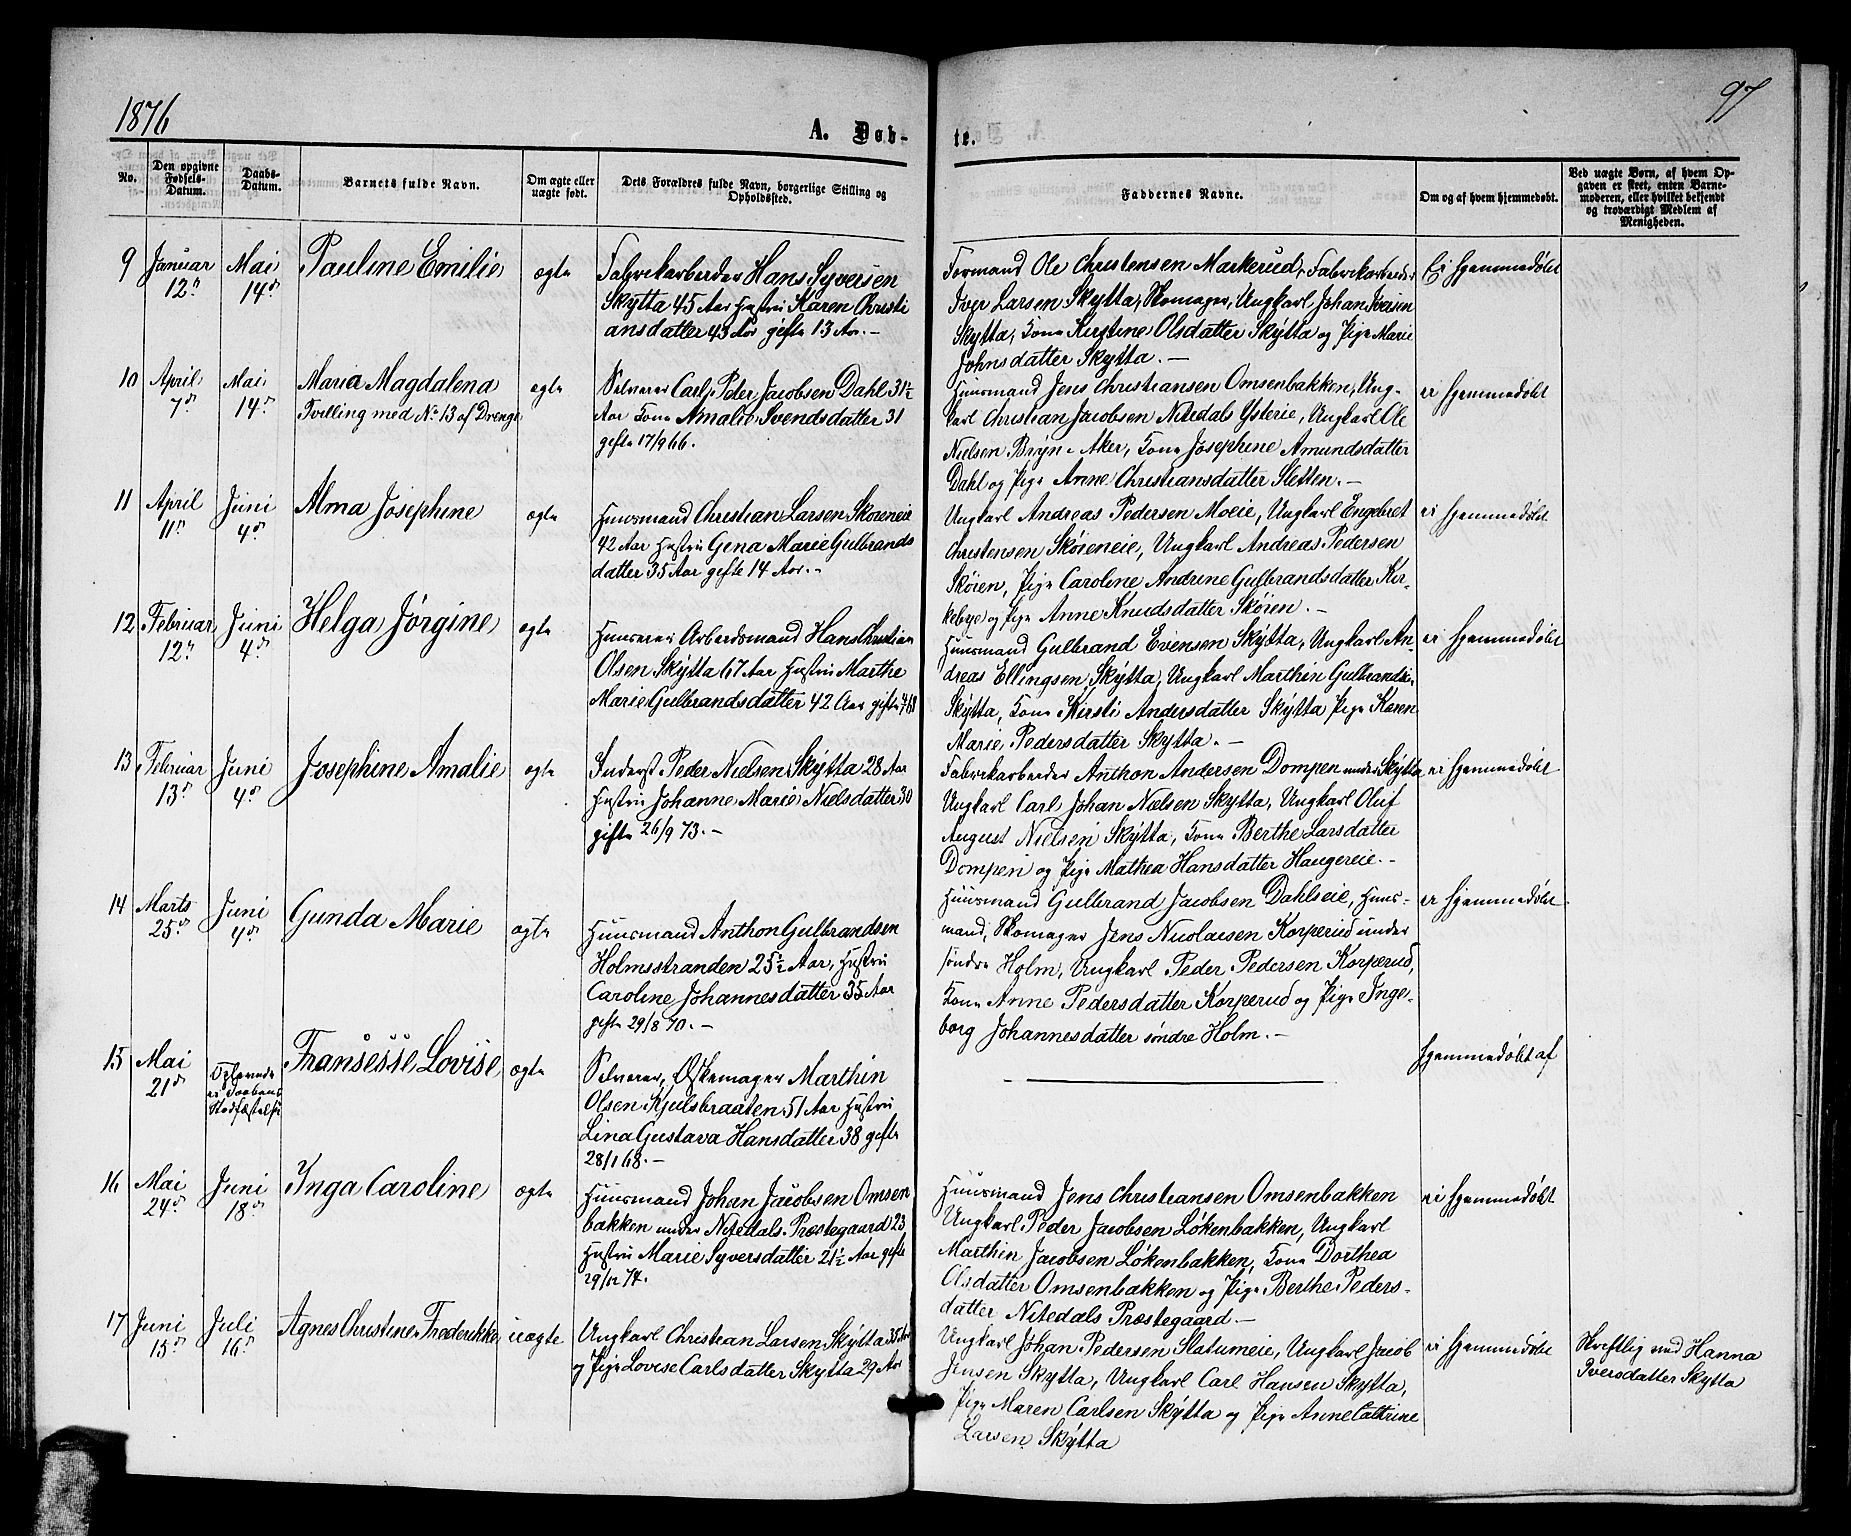 1876
97
A. Døb-
te.
No.
Den opgivne
Fødsels-
Datum.
Daabs-
Datum.
Barnets fulde Navn.
Om ægte eller
uægte født.
Dets Forældres fulde Navn, borgerlige Stilling og
Opholdssted.
Faddernes Navne.
Om og af hvem hjemmedøbt.
Ved uægte Børn, af hvem Op-
gaven er skeet, enten Barne-
moderen, eller hvilket bekjendt
og troværdigt Medlem af
Menigheden.
9 Januar
12te
Mai
14de
Pauline Emilie
ægte
Fabrikarbeider Hans Syversen
Skytta 45 Aar Hustru Karen Christi
ansdatter 43 Aar gifte 13 Aar. –
Formand Ole Christensen Markerud, Fabrikarbeider
Iver Larsen Skytta, Skomager, Ungkarl Johan Iversen
Skytta, Kone Kirstine Olsdatter Skytta og Pige Marie
Johnsdatter Skytta. –
Ei hjemmedøbt
10 April
7de
Mai
14de
Maria Magdalena
Tvilling med No 13 af Drenge
ægte
Selveier Carl Peder Jacobsen Dahl 31½
Aar Kone Amalie Svendsdatter 31
gifte 17/9 66.
Huusmand Jens Christiansen Omsenbakken, Ung-
karl Christian Jacobsen Nitedals Ysterie, Ungkarl Ole
Nielsen Bryn i Aker, Kone Josephine Amundsdatter
Dahl og Pige Anne Christiansdatter Sletten. –
ei hjemmedøbt
11 April
11te
Juni
4de
Alma Josephine
ægte
Huusmand Christian Larsen Skøieneie
42 Aar Hustru Gena Marie Gulbrands
datter 35 Aar gifte 14 Aar. –
Ungkarl Andreas Pedersen Moeie, Ungkarl Engebret
Christensen Skøieneie, Ungkarl Andreas Pedersen
Skøien, Pige Caroline Andrine Gulbrandsdatter Kir-
kebye og Pige Anne Knudsdatter Skøien. –
ei hjemmedøbt
12 Februar
12te
Juni
4de
Helga Jørgine
ægte
Huuseier Arbeidsmand Hans Christian
Olsen Skytta 67 Aar Hustru Marthe
Marie Gulbrandsdatter 42 Aar gifte
Huusmand Gulbrand Evensen Skytta, Ungkarl An-
dreas Ellingsen Skytta, Ungkarl Marthin Gulbrandsen
Skytta, Kone Kirsti Andersdatter Skytta Pige Karen
Marie Pedersdatter Skytta. –
ei hjemmedøbt
13 Februar
13de
Juni
4de
Josephine Amalie
ægte
Inderst Peder Nielsen Skytta 28 Aar
Hustru Johanne Marie Nielsdatter 30
gifte 26/9 73. –
Fabrikarbeider Anthon Andersen Dompen under Skytta
Ungkarl Carl Johan Nielsen Skytta, Ungkarl Oluf
August Nielsen Skytta, Kone Berthe Larsdatter
Dompen og Pige Mathea Hansdatter Haugereie. –
ei hjemmedøbt
14 Marts
25de
Juni
4de
Gunda Marie
ægte
Huusmand Anthon Gulbrandsen
Holmsstranden 25½ Aar, Hustru
Caroline Johannesdatter 35 Aar
gifte 29/8 70. –
Huusmand Gulbrand Jacobsen Dahlseie, Huus-
mand, Skomager Jens Nicolaisen Korperud under
søndre Holm, Ungkarl Peder Pedersen Korperud,
Kone Anne Pedersdatter Korperud og Pige Inge-
borg Johannesdatter søndre Holm. –
ei hjemmedøbt
15 Mai
21de
Oplevede
ei Daabens
Stadfæstelse
Fransesse Lovise
ægte
Selveier, Æskemager Marthin
Olsen Kjulsbraaten 51 Aar Hustru
Lina Gustava Hansdatter 38 gifte
28/1 68. –
hjemmedøbt af
16 Mai
24de
Juni
18de
Inga Caroline
ægte
Huusmand Johan Jacobsen Omsen
bakken under Nitedals Præstegaard 23
Hustru Marie Syversdatter 21½ Aar gifte
29/12 74.
Huusmand Jens Christiansen Omsenbakken
Ungkarl Peder Jacobsen Løkenbakken, Ungkarl
Marthin Jacobsen Løkenbakken, Kone Dorthea
Olsdatter Omsenbakken og Pige Berthe Peders-
datter Nitedals Præstegaard. –
ei hjemmedøbt
17 Juni
15de
Juli
16de
Agnes Christine Frederikke
uægte
Ungkarl Christian Larsen Skytta 35 Aar
og Pige Lovise Carlsdatter Skytta 29 Aar
Ungkarl Johan Pedersen Slatumeie, Ungkarl Jacob
Jensen Skytta, Ungkarl Carl Hansen Skytta,
Pige Maren Carlsen Skytta og Pige Anne Cathrine
Larsen Skytta
ei hjemmedøbt
Skriftlig med Hanna
Iversdatter Skytta